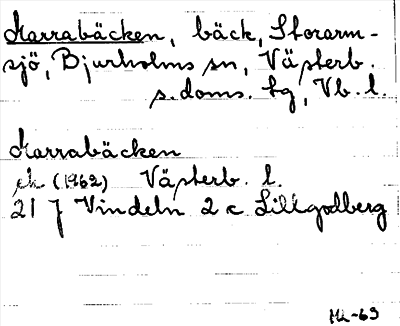 Karrabäcken, bäck, Storarm-
sjö, Bjurholms sn, Västerb.
s. doms. tg, Vb. l.
Karrabäcken
ek (1962) Västerb. l.
21 J Vindeln 2 c Lillgodberg
Hk-69